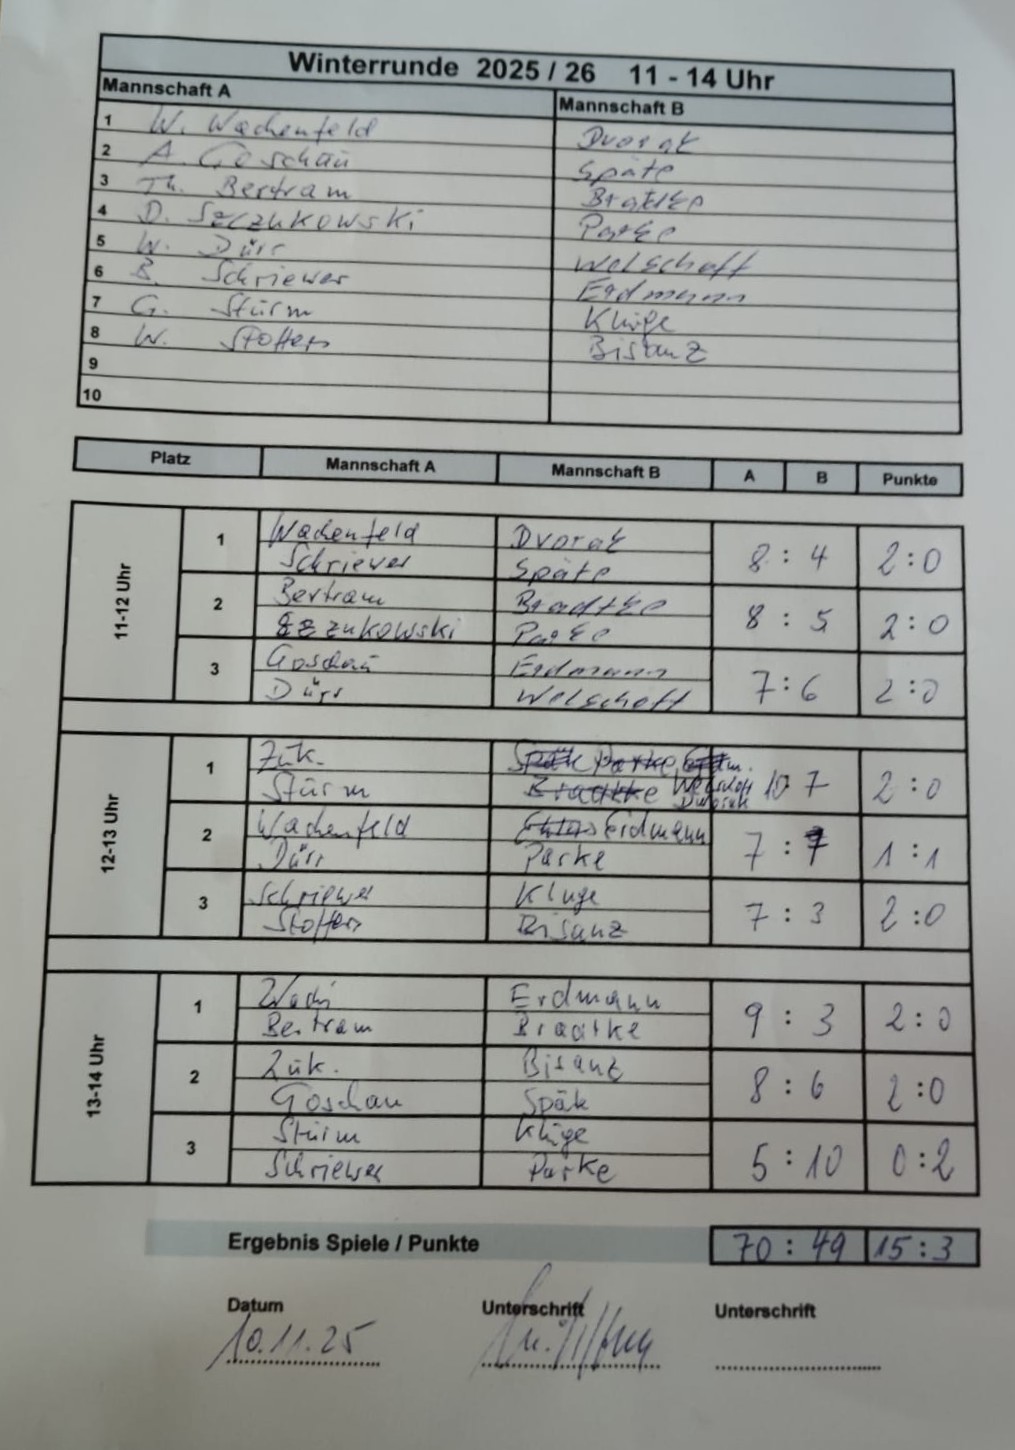 Winterrunde 2025 / 26 11 - 14 Uhr
Mannschaft A Mannschaft B
1 W. Wachenfeld Dvorak
2 A. Goschau Späte
3 Th. Bertram Bratke
4 D. Szczukowski Parke
5 W. Dürr Welschoff
6 B. Schriewer Erdmann
7 G. Stürm Kluge
8 W. Stoffers Bisanz
9
10
Platz Mannschaft A Mannschaft B A B Punkte
11-12 Uhr
1 Wachenfeld Dvorak 8 : 4 2:0
Schriever Späte
2 Bertram Bradtke 8 : 5 2:0
Szczukowski Parke
3 Goschau Erdmann 7:6 2:0
Dürr Welschoff
12-13 Uhr
1 Zuk. 10 7 2:0
Stürm Dvorak
2 Wachenfeld Erdmann 7 : 7 1:1
Dürr Parke
3 Schriewer Kluge 7 : 3 2:0
Stoffers Bisanz
13-14 Uhr
1 Wachi Erdmann 9 : 3 2:0
Bertram Bradtke
2 Zuk. Bisanz 8 : 6 2:0
Goschau Spät
3 Stürm Kluge 5 : 10 0:2
Schriewer Parke
Ergebnis Spiele / Punkte 70 : 49 15:3
Datum Unterschrift Unterschrift
10.11.25